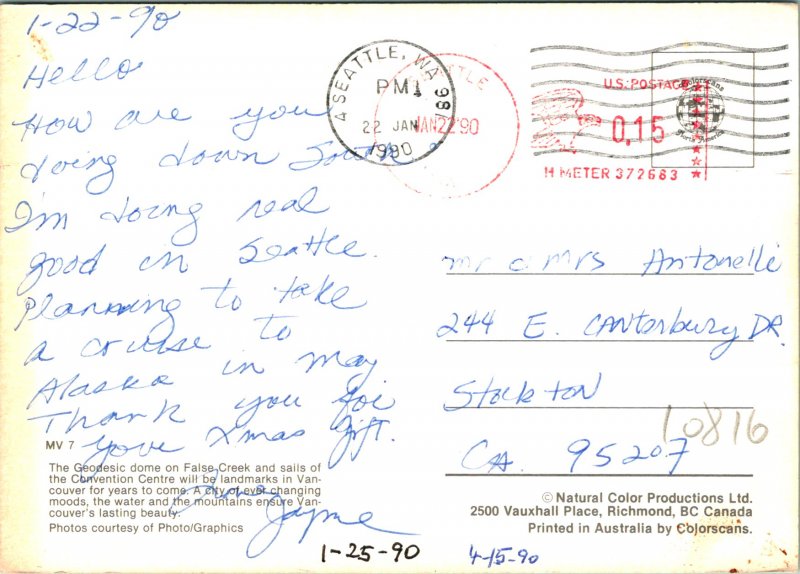 1-22-90
Hello
How are you
doing down South
I'm doing real
good in Seattle.
Planning to take
a cruise to
Alaska in may
Thank you for
your Xmas gift.
Love
Jayme
MV 7
The Geodesic dome on False Creek and sails of
the Convention Centre will be landmarks in Van-
couver for years to come. A city of ever changing
moods, the water and the mountains ensure Van-
couver's lasting beauty.
Photos courtesy of Photo/Graphics
1-25-90
4-15-90
SEATTLE, WA 98
PM
22 JAN
1990
SEATTLE
JAN22'90
U.S. POSTAGE
0.15
H METER 372663
Colorscans
mr & Mrs Antonelli
244 E. CANterbury DR.
Stockton
CA. 95207
10816
© Natural Color Productions Ltd.
2500 Vauxhall Place, Richmond, BC Canada
Printed in Australia by Colorscans.